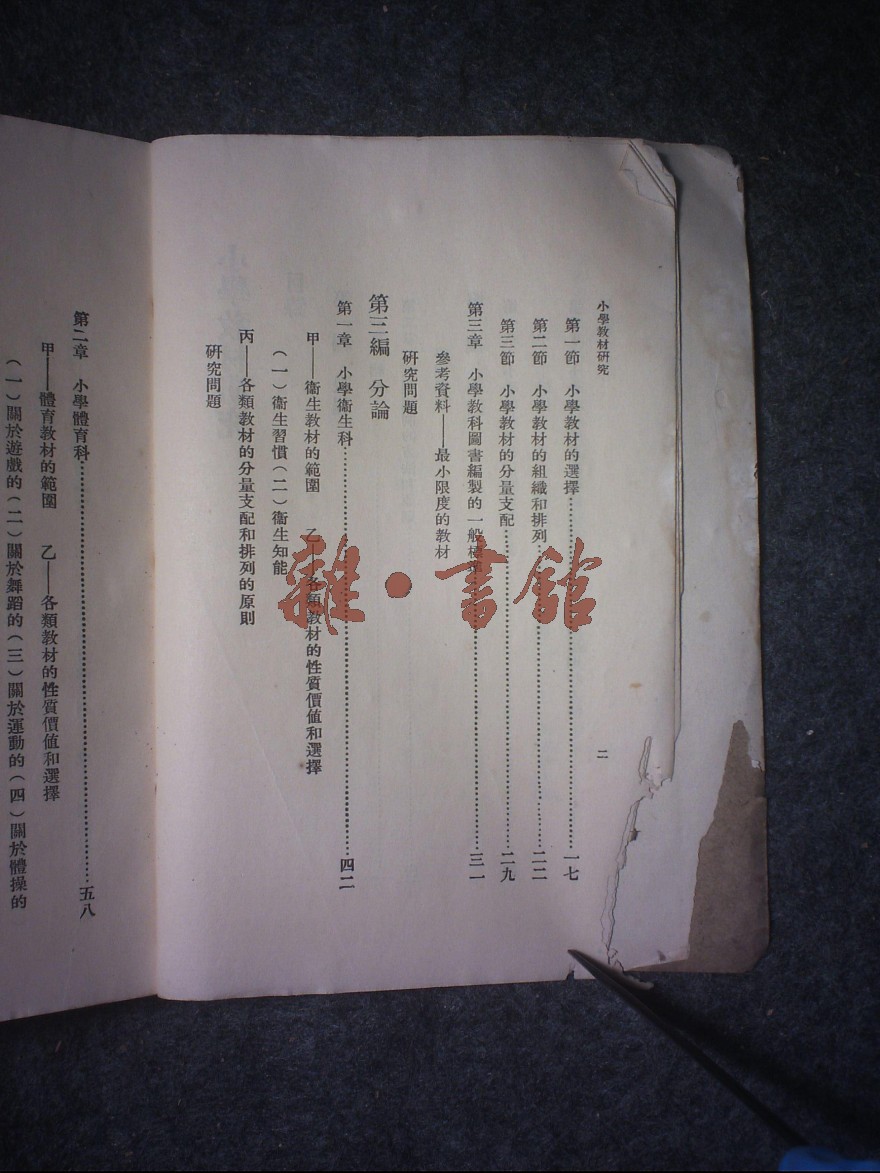 小學教材研究
二
第一節 小學教材的選擇⋯⋯一七
第二節 小學教材的組織和排列⋯⋯二二
第三節 小學教材的分量支配⋯⋯二九
第三章 小學教科圖書編製的一般標準⋯⋯三一
參考資料——最小限度的教材
研究問題
第三編 分論
第一章 小學衞生科⋯⋯四二
甲——衞生教材的範圍 乙——各類教材的性質價值和選擇
(一)衞生習慣(二)衞生知能
丙——各類教材的分量支配和排列的原則
研究問題
第二章 小學體育科⋯⋯五八
甲——體育教材的範圍 乙——各類教材的性質價值和選擇
(一)關於遊戲的(二)關於舞蹈的(三)關於運動的(四)關於體操的
雜·書館